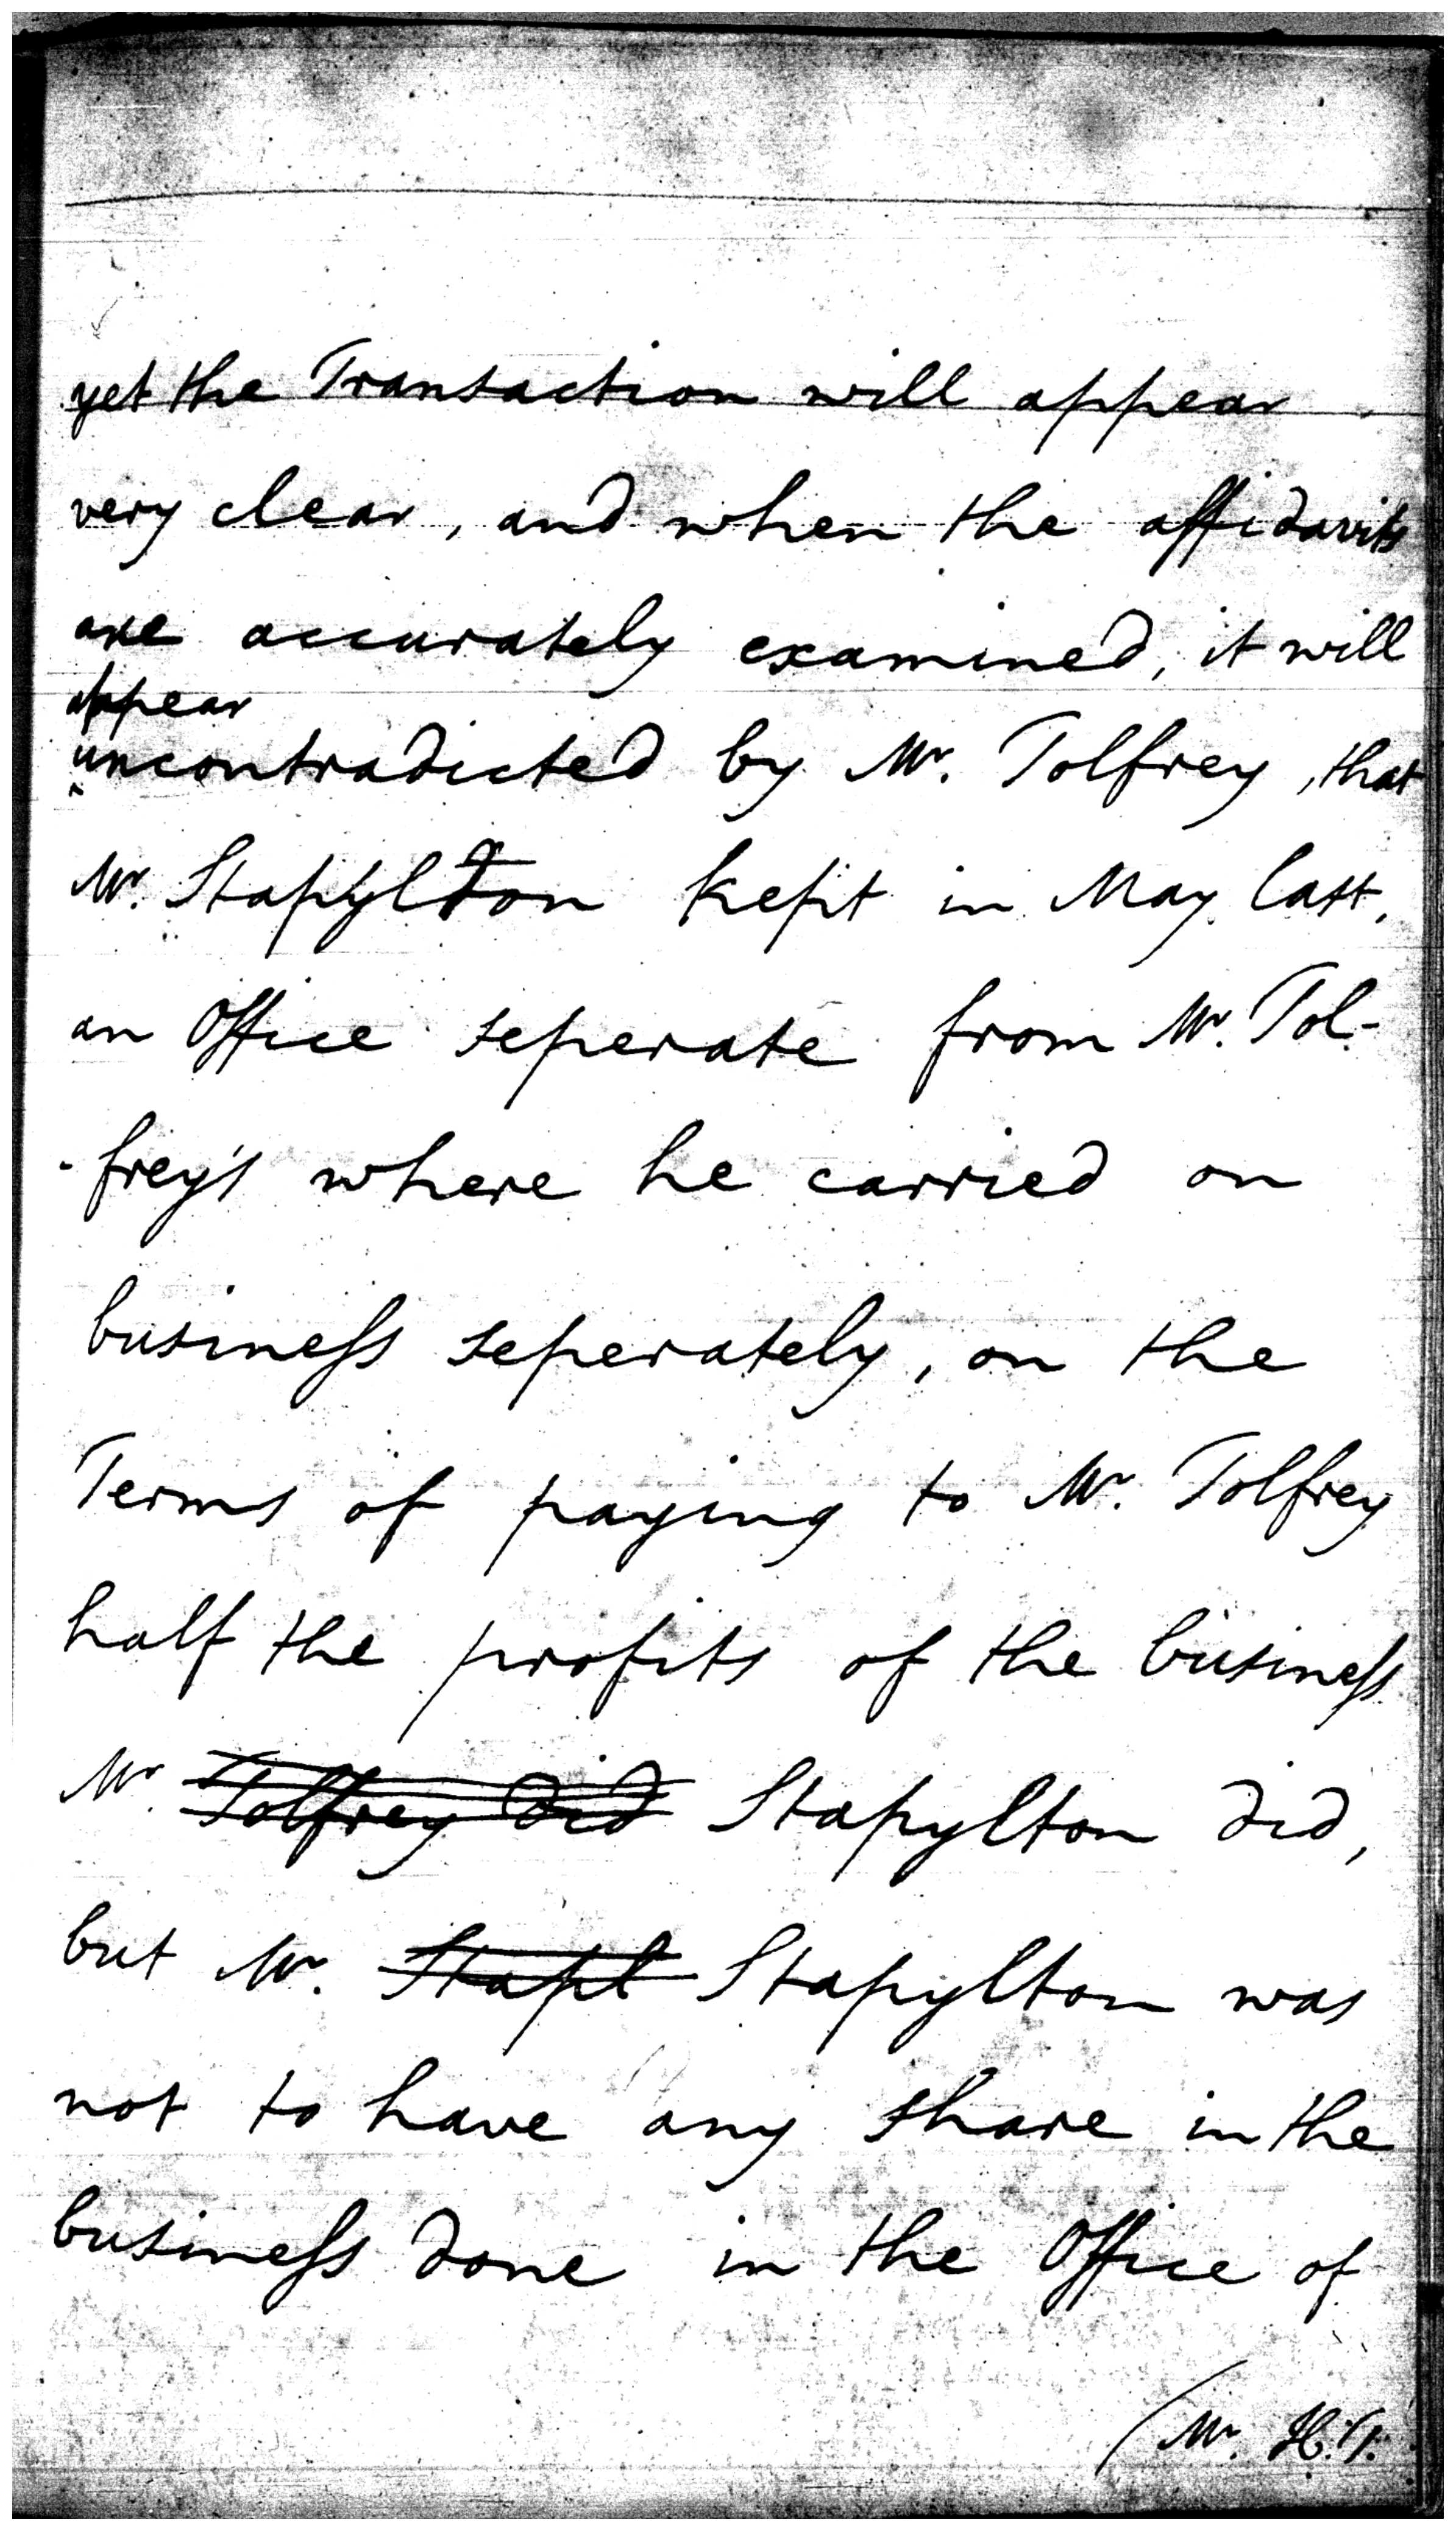 yet the Transaction will appear
very clear, and when the affidavits
are accurately examined, it will
appear
uncontradicted by Mr. Tolfrey, that
Mr. Stapylton kept in May last,
an Office seperate from Mr. Tol-
-frey's where he carried on
business seperately, on the
Terms of paying to Mr. Tolfrey
half the profits of the business
Mr. Tolfrey did Stapylton did,
but Mr. Stapl Stapylton was
not to have any share in the
business done in the Office of
(Mr. H. T.